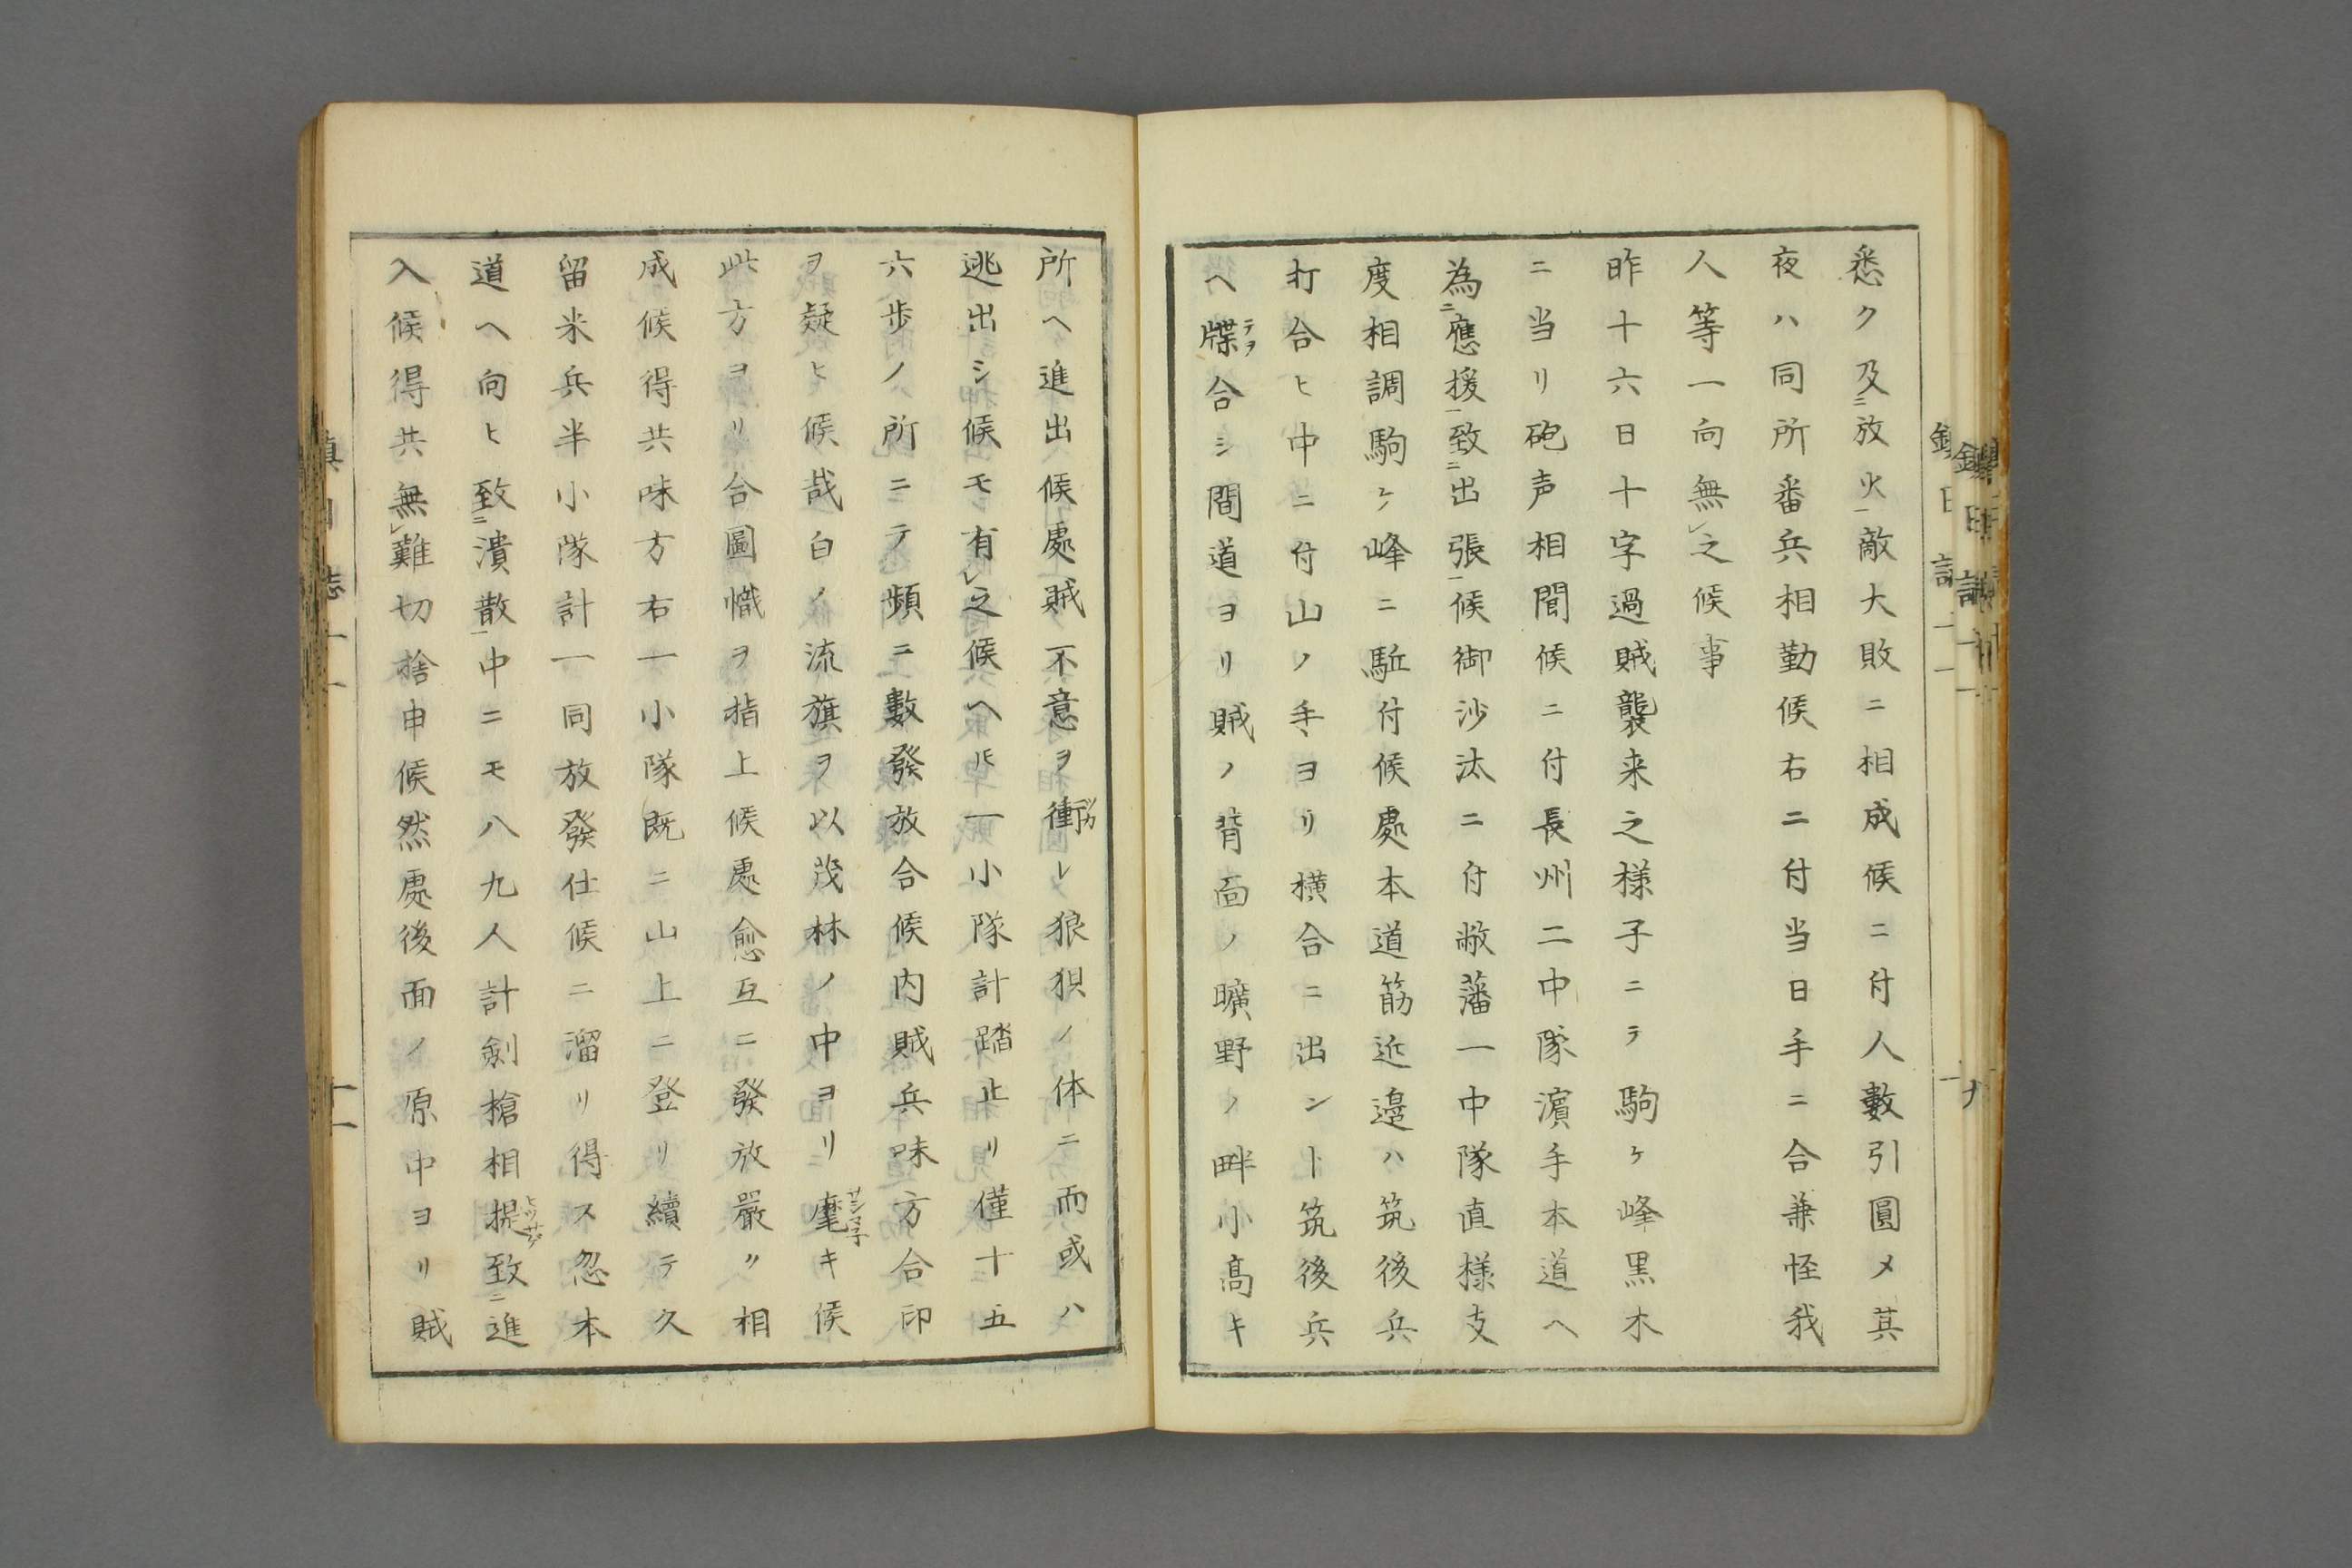 悉ク及ニ放火一敵大敗ニ相成候ニ付人數引圓メ其
夜ハ同所番兵相勤候右ニ付当日手ニ合兼怪我
人等一向無レ之候事
昨十六日十字過賊襲来之様子ニテ駒ケ峰黒木
ニ当リ砲声相聞候ニ付長州二中隊濵手本道ヘ
為ニ應援一致ニ出張一候御沙汰ニ付敝藩一中隊直様支
度相調駒ケ峰ニ駈付候處本道筋近邉ハ筑後兵
打合ヒ中ニ付山ノ手ヨリ横合ニ出ントト筑後兵
ヘ牒テヲ合シ間道ヨリ賊ノ背面ノ曠野ノ畔小高キ
所ヘ進出候處賊不意ヲ衝ツカレ狼狽ノ体ニ而或ハ
逃出シ候モ有レ之候ヘ𪜈一小隊計踏止リ僅十五
六歩ノ所ニテ頻ニ數發放合候内賊兵味方合印
ヲ疑ヒ候哉白ノ流旗ヲ以茂林ノ中ヨリ麾サシマ子キ候
此方ヨリ合圖幟ヲ指上候處愈互ニ發放嚴〃相
成候得共味方右一小隊既ニ山上ニ登リ續テ久
留米兵半小隊計一同放發仕候ニ溜リ得ス忽本
道ヘ向ヒ致ニ潰散一中ニモ八九人計剣槍相提ヒツサゲ致ニ進
入候得共無レ難切捨申候然處後面ノ原中ヨリ賊
十一